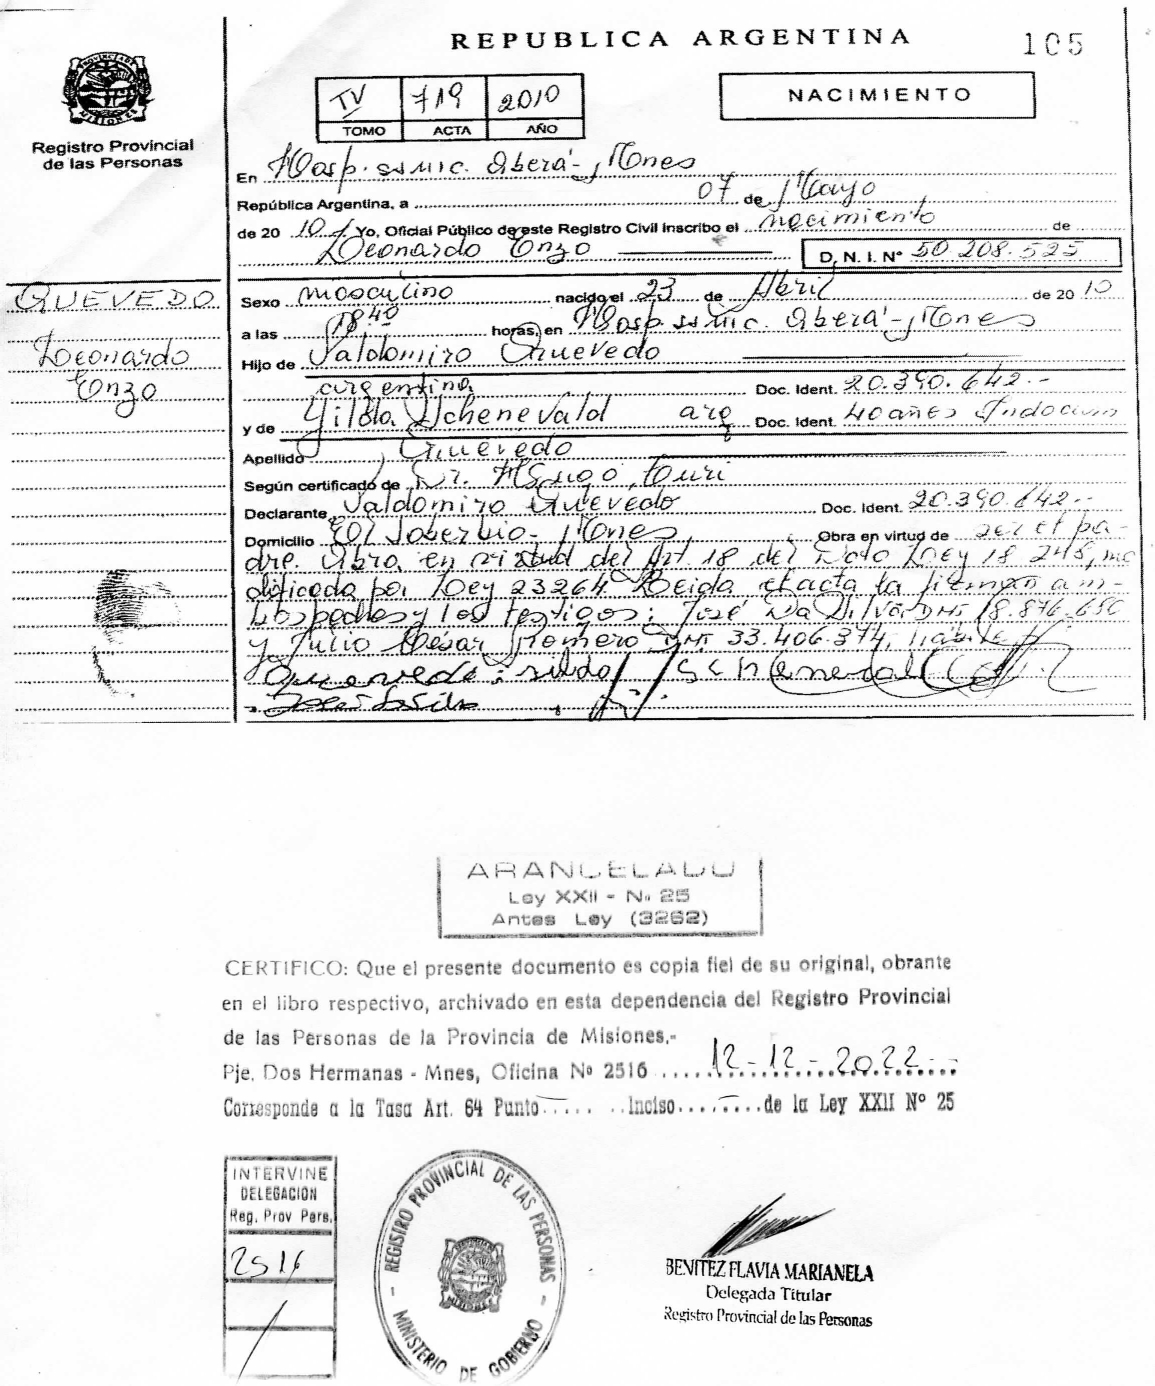 REPUBLICA ARGENTINA
105
PROVINCIA DE MISIONES
Registro Provincial
de las Personas
TV 719 2010
TOMO ACTA AÑO
NACIMIENTO
En Hosp. ssmic. Oberá - Mnes
República Argentina, a 07 de Mayo
de 20 10 Yo, Oficial Público de este Registro Civil Inscribo el nacimiento de
Leonardo Enzo
D.N.I. Nº 50.208.525
QUEVEDO
Leonardo
Enzo
Sexo masculino nacido el 23 de Abril de 20 10
a las 18.40 horas, en Hosp. ssmic. Oberá - Mnes
Hijo de Valdomiro Quevedo
argentina Doc. Ident. 20.390.642.-
y de Gilda Schenevald arg Doc. Ident. 40 años Indocum
Apellido Quevedo
Según certificado de Dr. Hugo
Declarante Valdomiro Quevedo Doc. Ident. 20.390.642.-
Domicilio El Soberbio - Mnes, Obra en virtud de ser el pa-
dre. Obra en virtud del Art 18 del Dcto Ley 18 248, mo
dificada por Ley 23264 Leida el acta la firman am-
bos padres y los testigos: José Da Silva DNI 18.876.650
y Julio César Romero DNI 33.406.374,
ARANCELADO
Ley XXII - Nº 25
Antes Ley (3262)
CERTIFICO: Que el presente documento es copia fiel de su original, obrante
en el libro respectivo, archivado en esta dependencia del Registro Provincial
de las Personas de la Provincia de Misiones.-
Pje. Dos Hermanas - Mnes, Oficina Nº 2516 ..... 12-12-2022.-
Corresponde a la Tasa Art. 64 Punto ..... Inciso ........ de la Ley XXII Nº 25
INTERVINE
DELEGACION
Reg. Prov Pers.
2516
REGISTRO PROVINCIAL DE LAS PERSONAS
MISIONES
- MINISTERIO DE GOBIERNO -
BENITEZ FLAVIA MARIANELA
Delegada Titular
Registro Provincial de las Personas